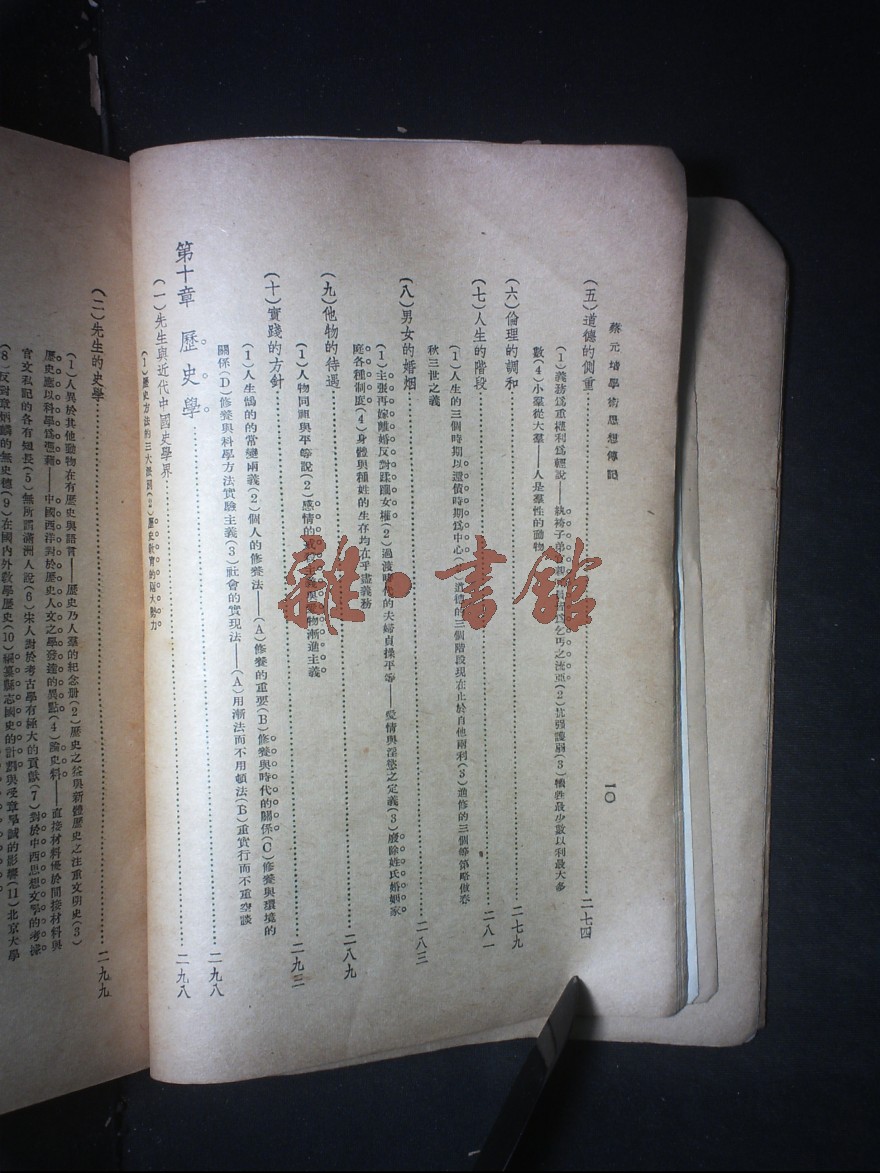 蔡元培學術思想傳記
一〇
(五)道德的側重……二七四
(1)義務爲重權利爲輕說——紈袴子弟 乞丐之流亞(2)抗强護弱(3)犧牲最少數以利最大多
數(4)小羣從大羣——人是羣性的動物
(六)倫理的調和……二七九
(七)人生的階段……二八一
(1)人生的三個時期以還債時期爲中心(2)道德的三個階段現在止於自他兩利(3)進修的三個等第略倣春
秋三世之義
(八)男女的婚烟……二八三
(1)主張再嫁離婚反對蹂躪女權(2)過渡時代的夫婦貞操平等——愛情與淫慾之定義(3)廢除姓氏婚姻家
庭各種制度(4)身體與種姓的生存均在乎盡義務
(九)他物的待遇……二八九
(1)人物同照與平等說(2)感情的戒殺主義與 物漸進主義
(十)實踐的方針……二九二
(1)人生鵠的的常變兩義(2)個人的修養法——(A)修養的重要(B)修養與時代的關係(C)修養與環境的
關係(D)修養與科學方法實驗主義(3)社會的實現法——(A)用漸法而不用頓法(B)重實行而不重空談
第十章 歷史學……二九八
(一)先生與近代中國史學界……二九八
(1)歷史方法的三大 (2)歷史教育的兩大動力
(二)先生的史學……二九九
(1)人異於其他動物在有歷史與語言——歷史乃人羣的紀念册(2)歷史之益與新體歷史之注重文明史(3)
歷史應以科學爲憑藉——中國西洋對於歷史人文之學發達的異點(4)論史料——直接材料優於間接材料與
官文私記的各有短長(5)無所謂滿洲人說(6)宋人對於考古學有極大的貢獻(7)對於中西思想文學的考據
(8)反對章炳麟的無史德(9)在國內外教學歷史(10)編纂縣志國史的計劃與受章學誠的影響(11)北京大學
雜·書館